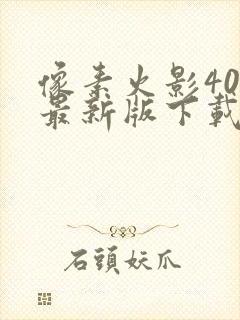 像素火影40
最新版下載
石頭妖爪